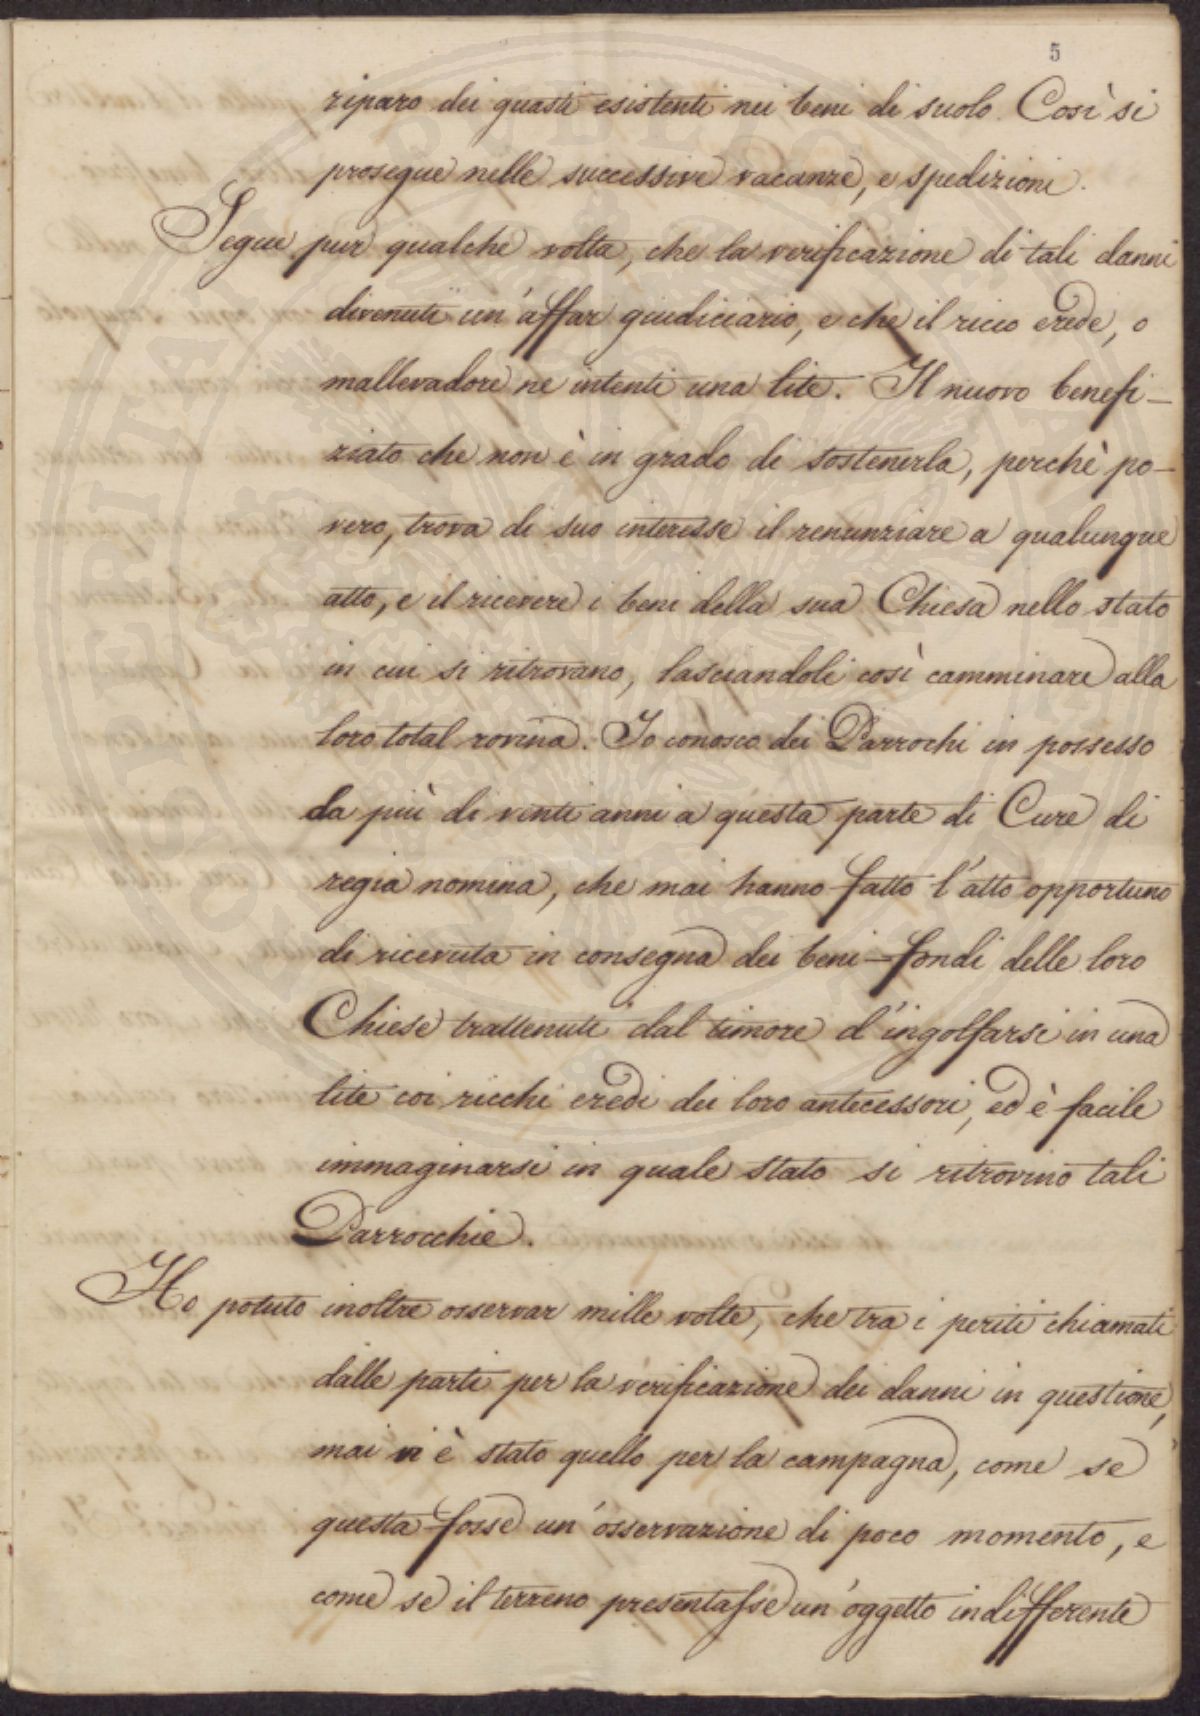 5
riparo dei guasti esistenti nei beni di suolo. Così si
prosegue nelle successive vacanze, e spedizioni.
Segue pur qualche volta, che la verificazione di tali danni
divenuti un'affar giudiciario, e che il ricco erede, o
mallevadore ne intenti una lite. Il nuovo benefi-
ziato che non è in grado di sostenerla, perchè po-
vero, trova di suo interesse il renunziare a qualunque
atto, e il ricevere i beni della sua Chiesa nello stato
in cui si ritrovano, lasciandoli così camminare alla
loro total rovina. Io conosco dei Parrochi in possesso
da più di venti anni a questa parte di Cure di
regia nomina, che mai hanno fatto l'atto opportuno
di ricevuta in consegna dei beni-fondi delle loro
Chiese trattenuti dal timore d'ingolfarsi in una
lite coi ricchi eredi dei loro antecessori, ed è facile
immaginarsi in quale stato si ritrovino tali
Parrocchie.
Ho potuto inoltre osservar mille volte, che tra i periti chiamati
dalle parti per la verificazione dei danni in questione,
mai vi è stato quello per la campagna, come se
questa fosse un'osservazione di poco momento, e
come se il terreno presentasse un'oggetto indifferente